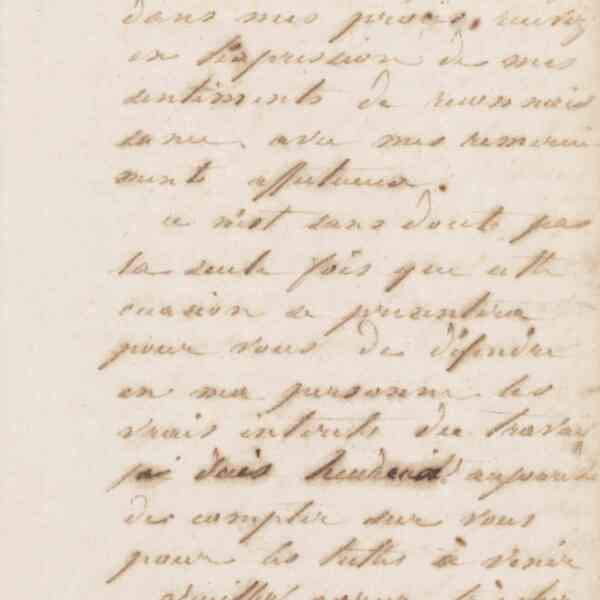 dans mes procès, recevez
en l'expression de mes
sentiments de reconnais
sance, avec mes remercie
ments affectueux.
ce n'est sans doute pas
la seule fois que cette
occasion se présentera
pour vous de défendre
en ma personne les
vrais intérêts du travail
je suis aujourd'
de compter sur vous
pour les luttes à venir